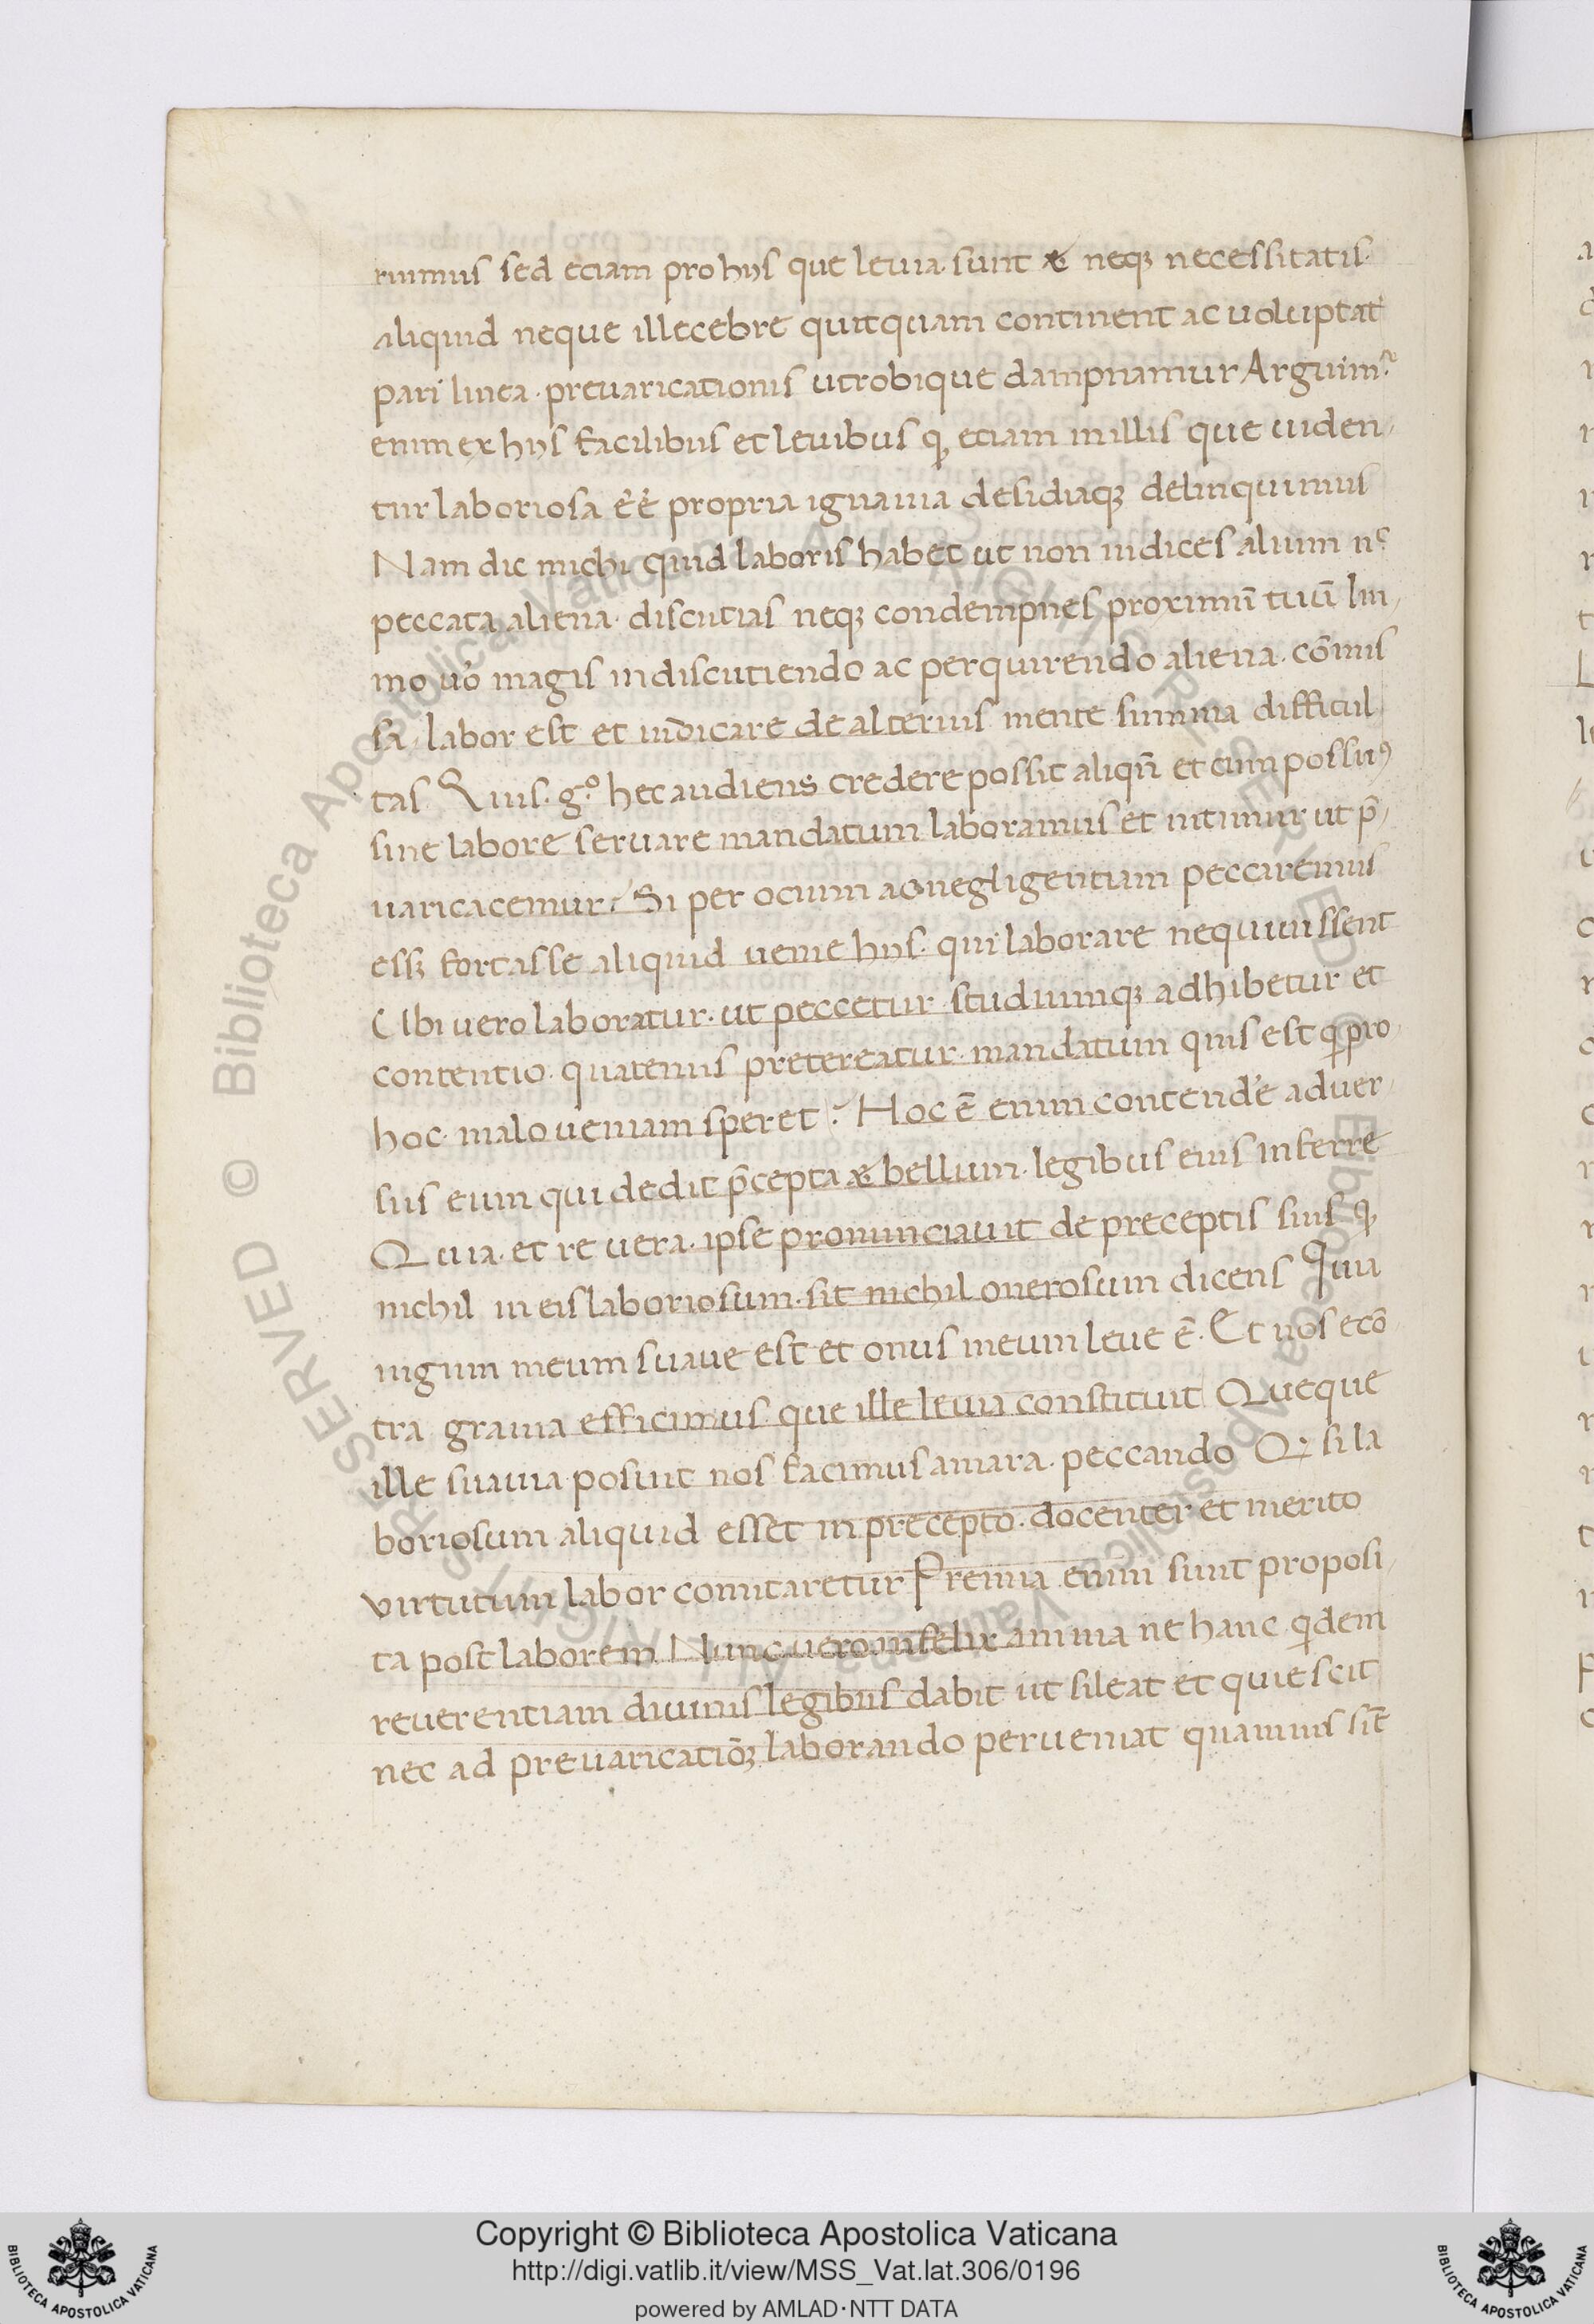 rimus sed eciam pro hijs que leuia · sunt & neqꝫ necessitatis ·
aliquid neque illecebre quitquam continent ac uoluptat
pari linea · preuaricationis utrobique dampnamur Arguim
enim ex hijs facilibus et leuibus ꝙ eciam in illis que uiden
tur laboriosa éé propria ignauia desidiaqꝫ delinquimus
Nam dic michi quid laboris habet ut non iudices alium nͨ
peccata aliena · discutias neqꝫ condempnes proximū tuū Im
mo uo̾ magis in discutiendo ac perquirendo aliena · cōmis
sa · labor est et iudicare de alterius mente summa difficul
tas Quis · g̊ · hec audiens credere possit aliqn̄ et cum possimꝰ
sine labore seruare mandatum laboramus et nitimur ut p̄
uaricacemur ? Si per ocium ac negligentiam peccaremus
essꝫ fortasse aliquid uenie hijs · qui laborare nequiuissent
Ubi uero laboratur · ut peccetur · studiumqꝫ adhibetur et
contentio · quatenus pretereatur · mandatum quis est q pro
hoc · malo ueniam speret ? Hoc ē enim contende̾ aduer
sus eum qui dedit p̄cepta & bellum · legibus eius inferre
Quia · et re uera · ipse pronunciauit de preceptis suis ꝙ
nichil in eis laboriosum · sit nichil onerosum dicens Quia
iugum meum suaue est et onus meum leue ē · Et nos ecō
tra grauia efficimus · que ille leuia constituit Queque
ille suauia posuit nos facimus amara · peccando Q; si la
boriosum aliquid esset in precepto · docenter et merito
virtutum labor comitaretur Premia enim sunt proposi
ta post laborem Nunc uero infelix anima ne hanc qidem
reuerentiam diuinis legibus dabit ut sileat et quiescit
nec ad preuaricatiōꝫ laborando perueniat quamuis sit̄
© Biblioteca Apostolica Vaticana
Copyright © Biblioteca Apostolica Vaticana
http://digi.vatlib.it/view/MSS_Vat.lat.306/0196
powered by AMLAD·NTT DATA
BIBLIOTECA APOSTOLICA VATICANA
BIBLIOTECA APOSTOLICA VATICANA